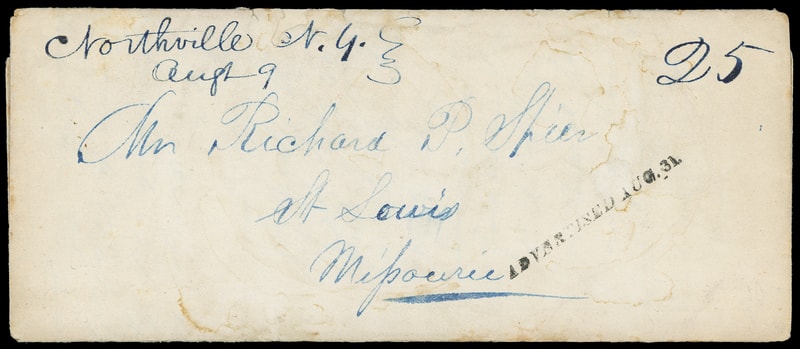 Northville N.Y.
Augt 9
25
Mr Richard P. Spier
St Louis
Missourie
ADVERTISED AUG. 31.